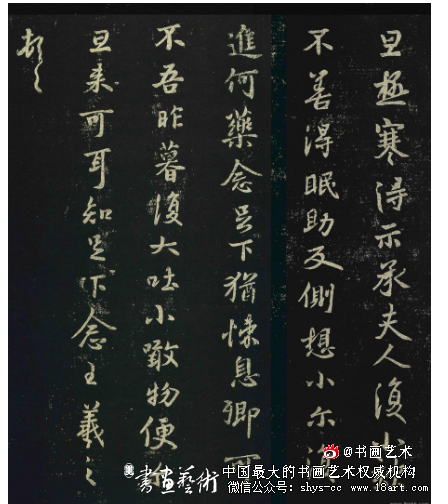 旦極寒得示承夫人復
不善得眠助反側想小尔復
進何藥念足下猶悚息卿可
不吾昨暮復大吐小噉物便
旦来可耳知足下念王羲之
頓首
@书画艺术
美 書畫藝術 中国最大的书画艺术权威机构
微信公众号: shys-cc www.18art.com